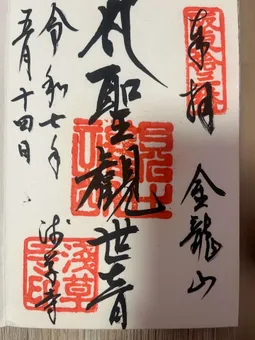 奉拝
金龍山
聖観世音
令和七年
五月十四日
浅草寺
淺草寺印